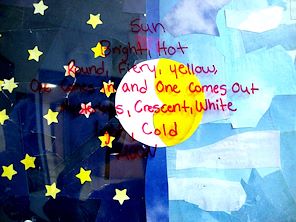 Sun
Bright, Hot
Round, Fiery, yellow,
One comes in and One comes Out
Crescent, White
Cold